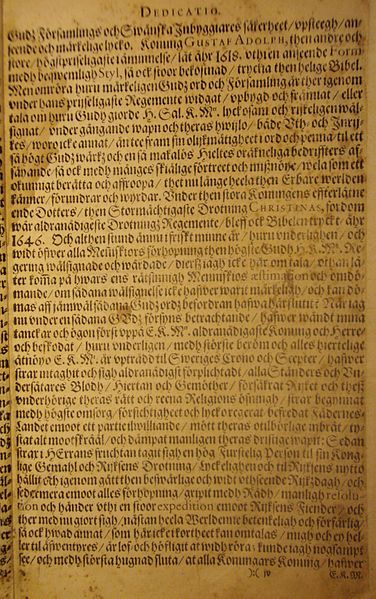 DEDICATIO.
Gudz Församlings och Swänska Inbyggiares säkerheet / upsteegh / an-
seende och märkelige lycko. Koning GUSTAF ADOLPH, then andre och
store, högstprijseligast i åminnelse / lät åhr 1618. uthi en anseende Form
medh beqwemligh Styl, så ock stoor bekostnad / tryckia then helige Bibel.
Men om röra huru märkeligen Gudz ord och Församling är ther igenom
under hans prijseligaste Regemente widgat / upbygd och främiat / eller
tala om huru Gudh giorde H. Sal. K. M. lyckosam och rijkeligen wäl-
signat / under gångande wapn och theras hwijlo / både Uth- och Inrij-
kes / woro icke annat / än tee fram sin olijkmätigheet i ord och penna / til ett
så högt Gudz wärk / och en så makalös Hieltes oräkneliga bedrifters af-
sawnande / så ock medh månges skiälige förtreet och misnöije / wela som ett
okunnigt berätta och affroopa / thet nu länge heela then Erbare werlden
känner / förundrar och wyrdar. Under then stora Konungens efterlätne
ende Dotters / then Stormächtigaste Drotning CHRISTINAS, fordom
wår aldranådigeste Drotningz Regemente / bleff ock Bibelen tryckt / åhr
1646. Och alt then stund ännu i friskt minne är / huru underligen / och
widt öfwer alla Menniskiors förhopning then högste Gudh H. K. M. Re-
gering wälsignade och wårdade / dierfz iagh icke här om tala / uthan lå-
ter komma på hwars ens räsinnigh Menniskios æstimation och omdö-
mande / om sådana wälsignelse icke hafwer warit märkeligh / och om hans
orsak aff samwälsådana Gudz ords befordran hafwa härflutit? När iagh
nu under en sådana Gudz försyns betrachtande / hafwer wändt mina
tanckar och ögon förste uppå E. K. M. aldranådigaste Koning och Herre
och beskodat / huru underligen / medh störste beröm och alles hiertelige
åtnöijo E. K. M. är upträdd til Sweriges Crono och Scepter / hafwer
strax intaghit och sigh aldranådigst förplichtadt / alla Ständers och Un-
dersåtares Blodh / Hiertan och Gemöther / försäkrat Rijket och thess
underhörige theras rätt och reena Religions öfningh / strax begynnat
medh högste omsorg / försichtigheet och lycko regerat / befredat Fädernes-
Landet emoot ett partie illwilliande / mött theras otilbörlige inbrät / ty-
stat alt mootskräål / och dämpat manligen theras dristige wapn: Sedan
strax i HErrans fruchtan tagit sigh en hög Furstelig Person til sin Kong-
lige Gemahl och Rijksens Drotning / Lyckelighen och til Rijksens nytto
hållit och igenom gått then beswärlige och widt uthseende Rijkzdagh / och
sedhermera emoot alles förhopning / gripit medh Rådh / manligh resolu-
tion och händer uthi en stoor expedition emoot Rijksens Fiender / och
ther medh nu giort sigh / nästan heela Werldenne betenkeligh och förfärligh /
så ock hwad annat / som här icke i korthet kan omtalas / nogh och en hel-
ler til äfwentyres / är lof- och höfligit at widh röra / kunde iagh nogsampt
see / och medh största hugnad sluta / at alla Konungars Koning / hafwer
):( iv
E. K. M.